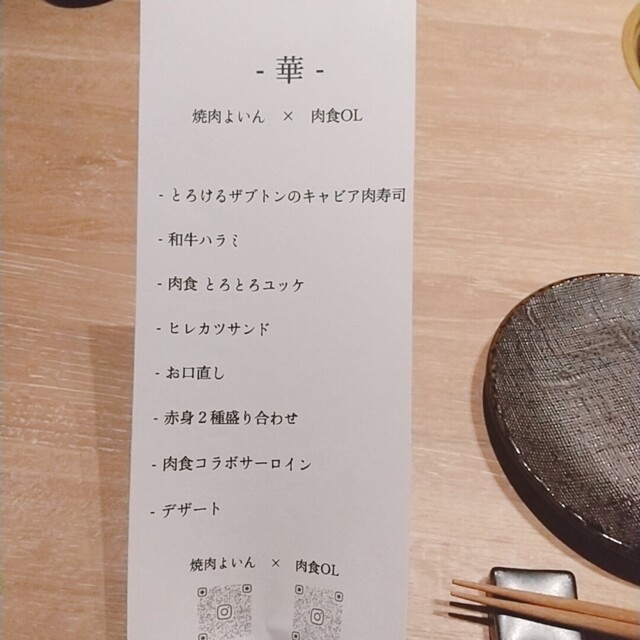 - 華 -
焼肉よいん × 肉食OL
- とろけるザブトンのキャビア肉寿司
- 和牛ハラミ
- 肉食 とろとろユッケ
- ヒレカツサンド
- お口直し
- 赤身２種盛り合わせ
- 肉食コラボサーロイン
- デザート
焼肉よいん × 肉食OL